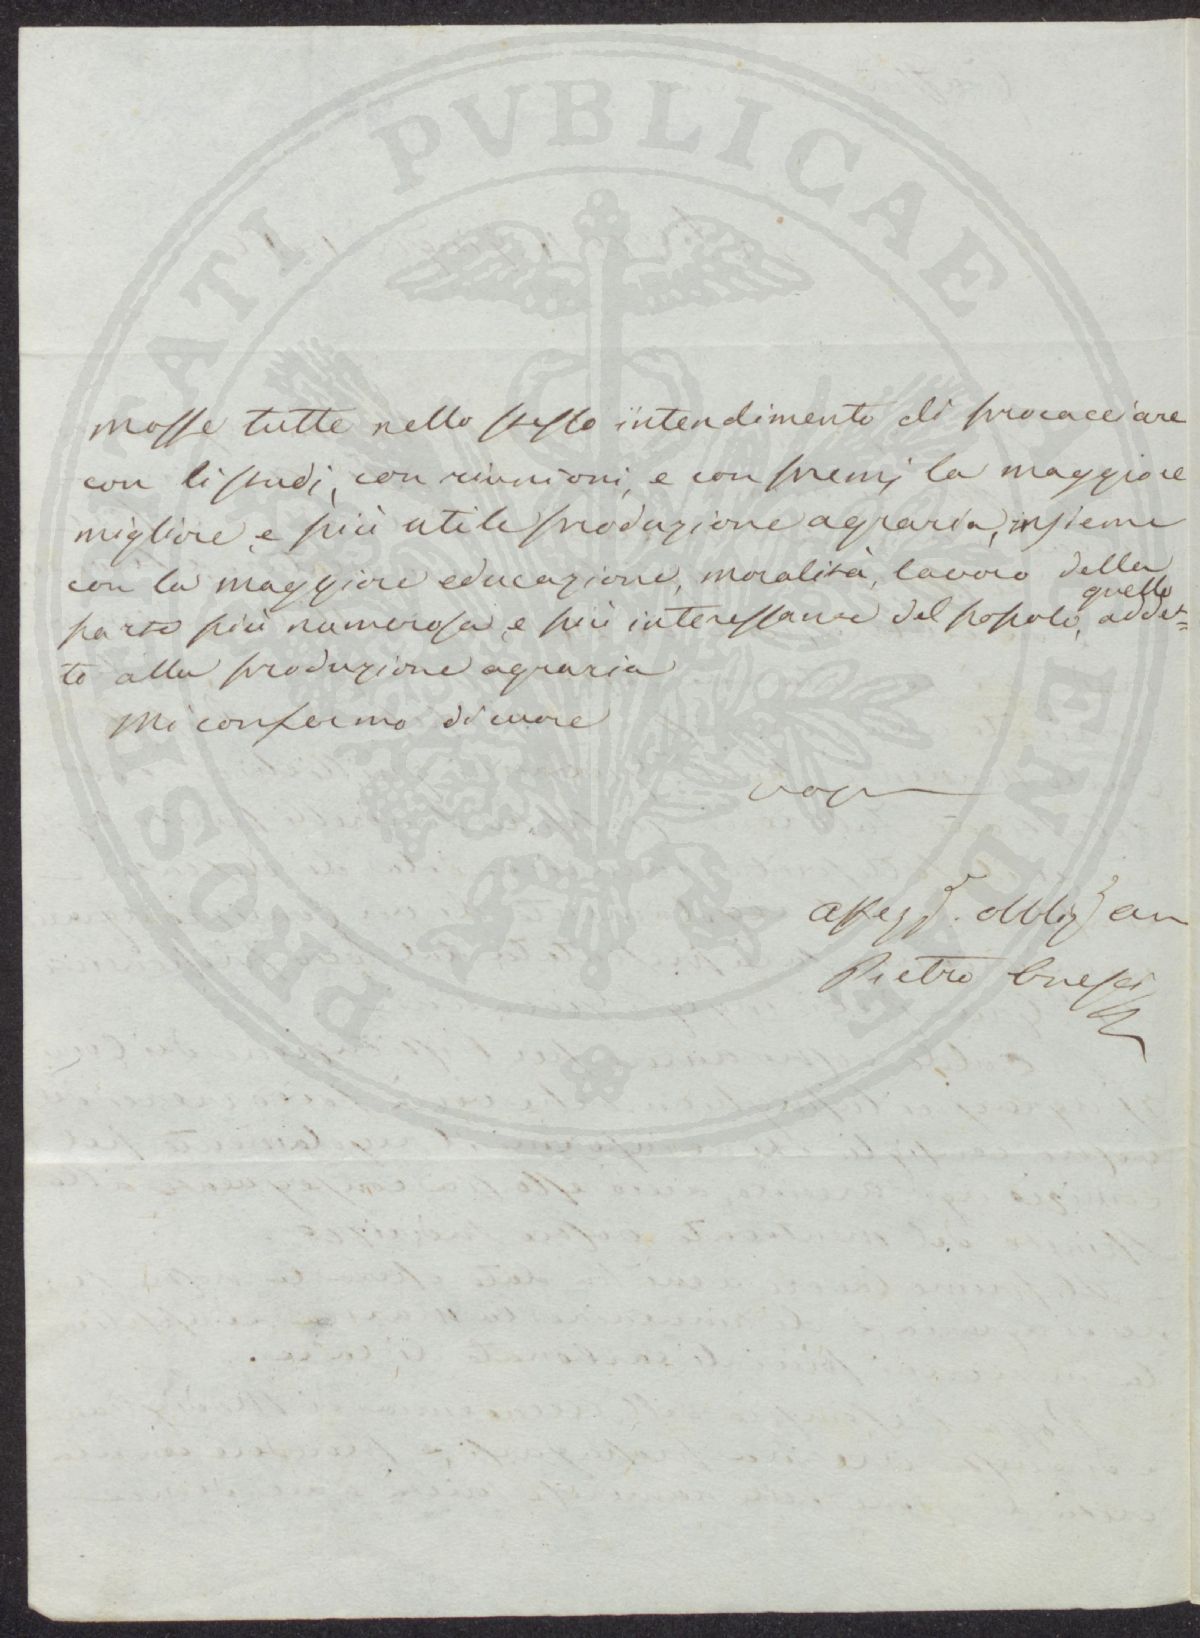 PROSPERITATI PVBLICAE AVGENDAE
mosse tutte nello stesso intendimento di procacciare
con li studi, con riunioni, e con premj la maggiore
migliore, e più utile produzione agraria, insieme
con la maggiore educazione, moralità, lavoro della
parte più numerosa, e più interessante del popolo, quello addet=
to alla produzione agraria
Mi confermo di cuore
affez. obblig.
Pietro